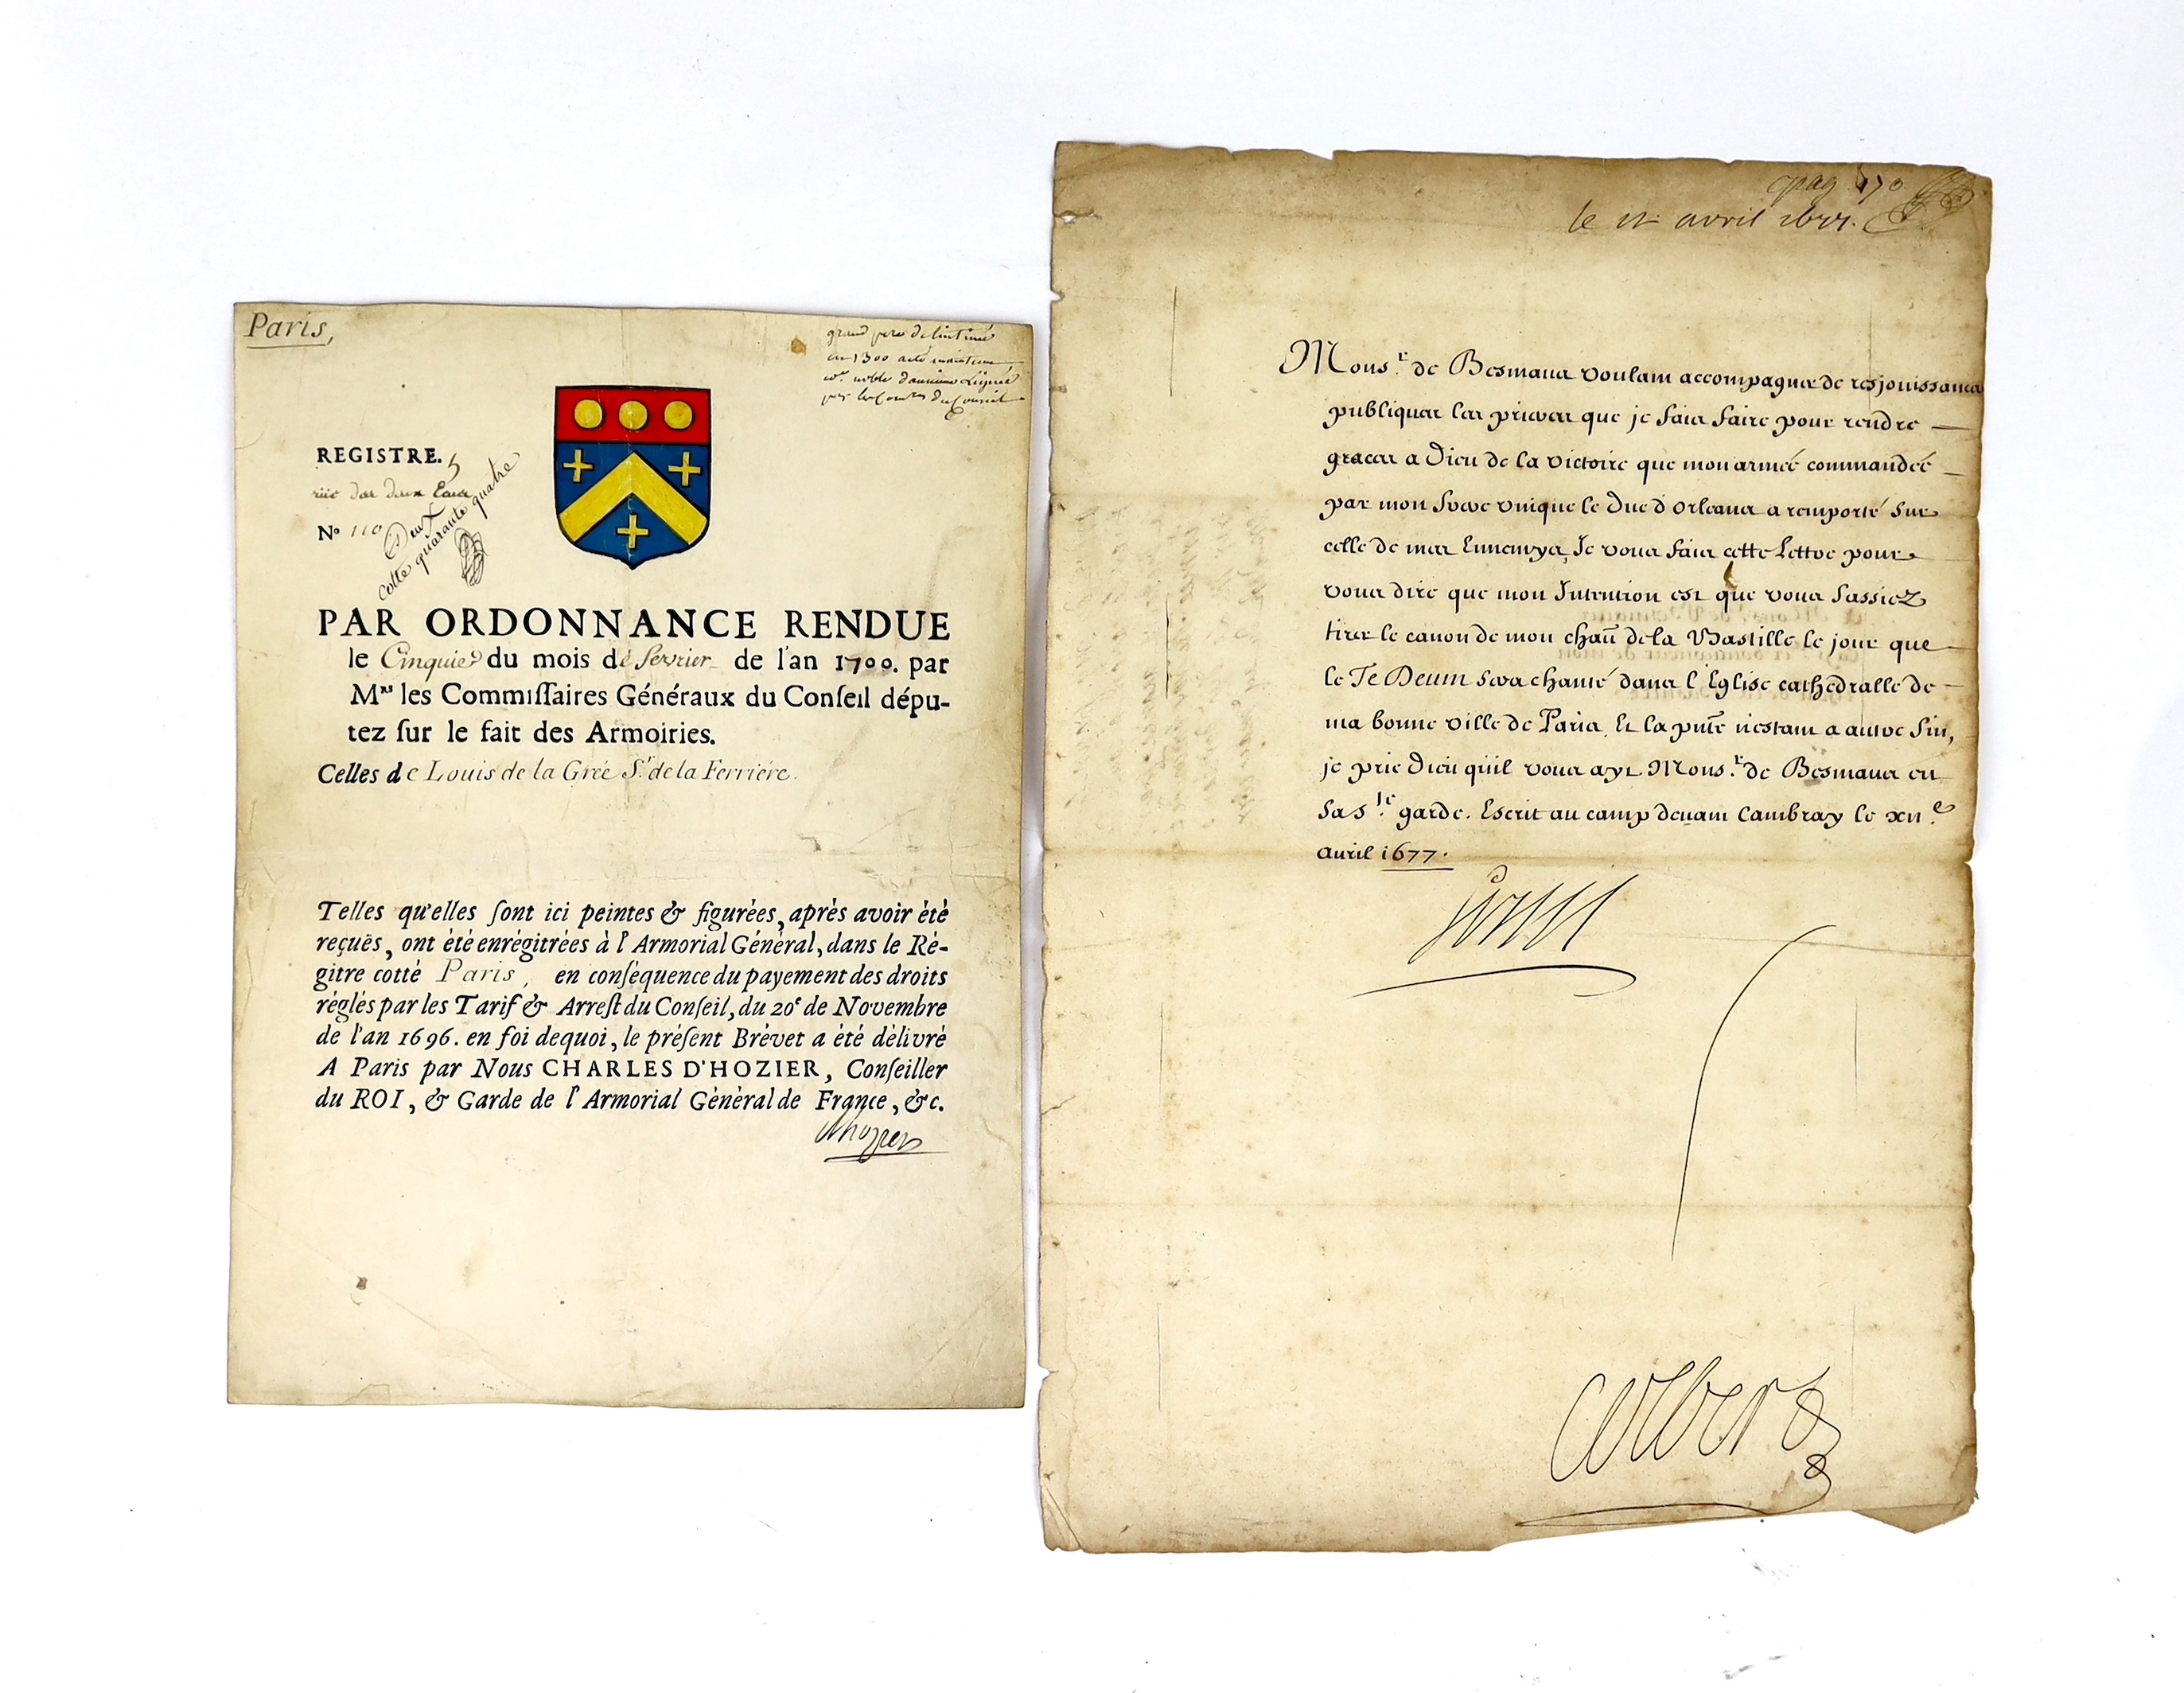 Paris,
grand pere de
en 1300
noble
REGISTRE. 5
rüe des deux Ecus
No 110
Deux
cotte quarante quatre
PAR ORDONNANCE RENDUE
le Cinquie du mois de fevrier de l'an 1700. par
Mrs les Commiſſaires Généraux du Conſeil dépu-
tez ſur le fait des Armoiries.
Celles de Louis de la Grée Sr. de la Ferriére.
Telles qu'elles ſont ici peintes & figurées, après avoir été
reçuës, ont été enrégitrées à l'Armorial Général, dans le Ré-
gitre cotté Paris, en conſéquence du payement des droits
réglés par les Tarif & Arreſt du Conſeil, du 20e de Novembre
de l'an 1696. en foi dequoi, le préſent Brévet a été délivré
A Paris par Nous CHARLES D'HOZIER, Conſeiller
du ROI, & Garde de l'Armorial Général de France, &c.
dhozier
pag. 170
le 12 avril 1677.
Mons.r de Besmaux voulant accompagner de resjouissances
publiques les prieres que je fais faire pour rendre
graces a Dieu de la victoire que mon armée commandée
par mon frere unique le Duc d'Orleans a remporté sur
celle de mes Ennemys, Je vous fais cette lettre pour
vous dire que mon Intention est que vous fassiez
tirer le canon de mon chau de la Bastille le jour que
le Te Deum sera chanté dans l'Eglise cathedralle de
ma bonne ville de Paris. Et la pnte n'estant a autre fin,
je prie Dieu qu'il vous ayt Mons.r de Besmaus en
sa s.te garde. Escrit au camp devant Cambray le xii.e
avril 1677.
Louis
Colbert